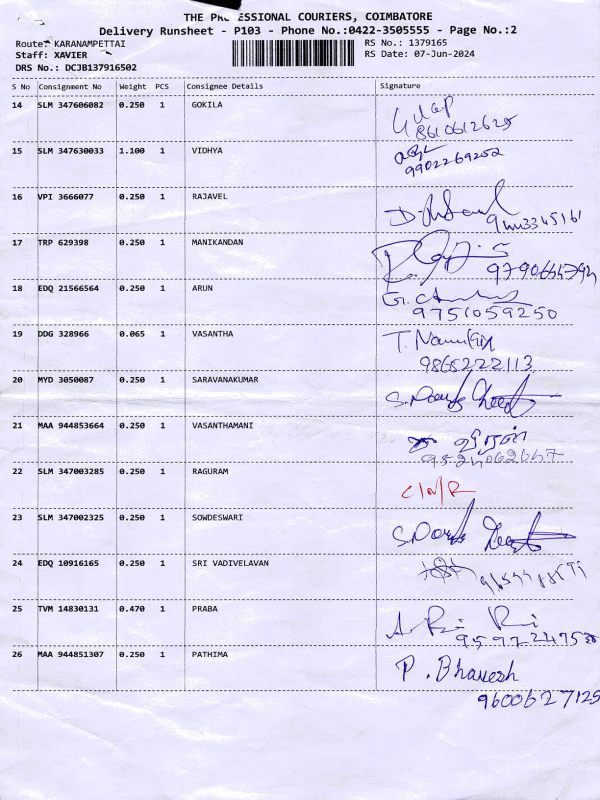 THE PROFESSIONAL COURIERS, COIMBATORE
Delivery Runsheet - P103 - Phone No.:0422-3505555 - Page No.:2
Route: KARANAMPETTAI RS No.: 1379165
Staff: XAVIER RS Date: 07-Jun-2024
DRS No.: DCJB137916502
S No Consignment No Weight PCS Consignee Details Signature
14 SLM 347606082 0.250 1 GOKILA
8610612625
15 SLM 347630033 1.100 1 VIDHYA
9902269252
16 VPI 3666077 0.250 1 RAJAVEL
17 TRP 629398 0.250 1 MANIKANDAN
18 EDQ 21566564 0.250 1 ARUN
9751059250
19 DDG 328966 0.065 1 VASANTHA
9865222113
20 MYD 3050087 0.250 1 SARAVANAKUMAR
21 MAA 944853664 0.250 1 VASANTHAMANI
22 SLM 347003285 0.250 1 RAGURAM
23 SLM 347002325 0.250 1 SOWDESWARI
24 EDQ 10916165 0.250 1 SRI VADIVELAVAN
25 TVM 14830131 0.470 1 PRABA
26 MAA 944851307 0.250 1 PATHIMA P. Bhavesh
9600627125